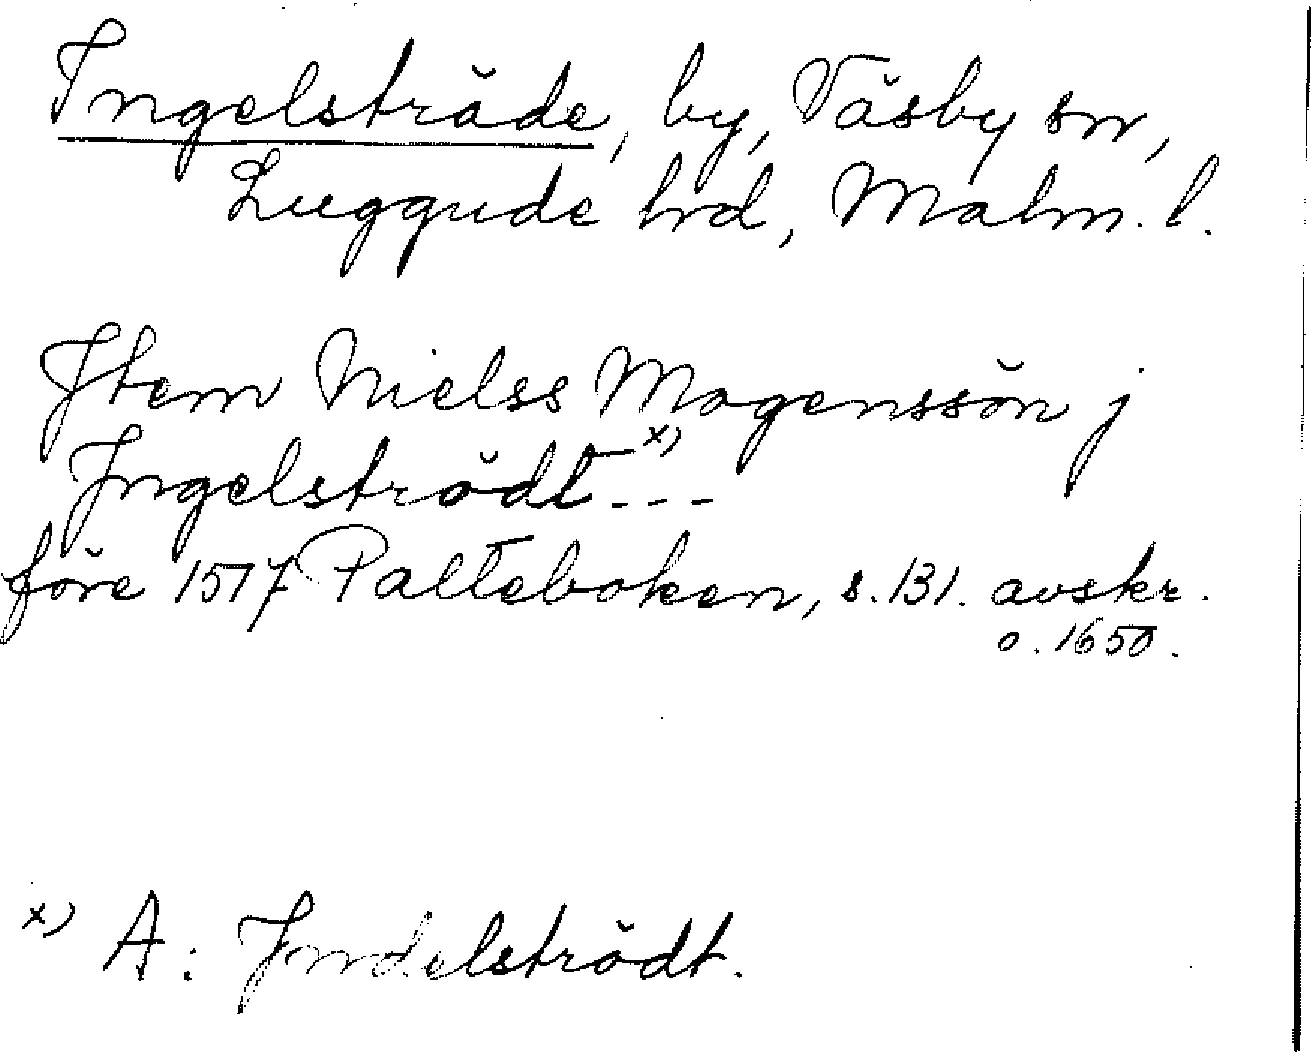 Ingelsträde, by, Väsby sn,
Luggude hrd, Malm. l.
Jtem Nielss Mogenssön j
Jngelströdt x) ---
före 1517 Palteboken, s. 131. avskr.
o. 1650.
x) A: Jndelströdt.